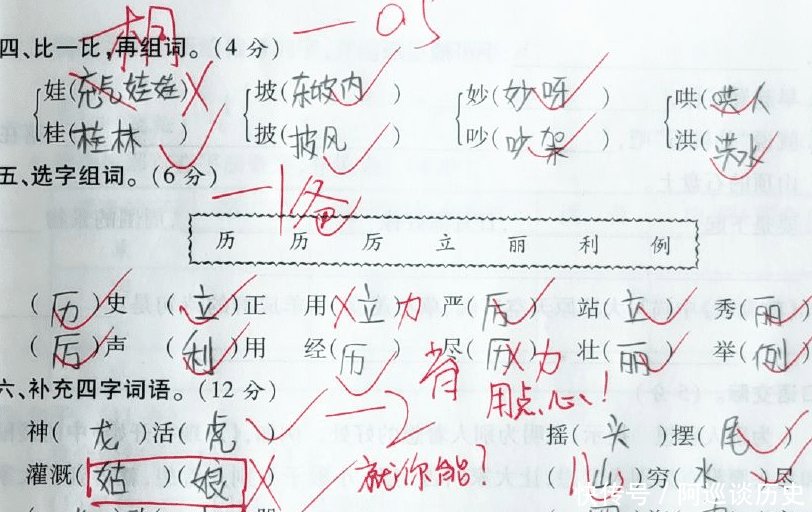 桐 一0.5
四、比一比,再组词。(4分)
娃(充气娃娃) 坡(东坡肉) 妙(妙呀) 哄(哄人)
桂(桂林) 披(披风) 吵(吵架) 洪(洪水)
五、选字组词。(6分) 一1爸
历 历 厉 立 丽 利 例
(历)史 (立)正 用(立)力 严(厉) 站(立) 秀(丽)
(厉)声 (利)用 经(历) 尽(历)力 壮(丽) 举(例)
六、补充四字词语。(12分) 一2 用点心!
神(龙)活(虎) 摇(头)摆(尾)
灌溉(姑)(娘) 就你能? 山穷水尽
快传号/阿巡谈历史